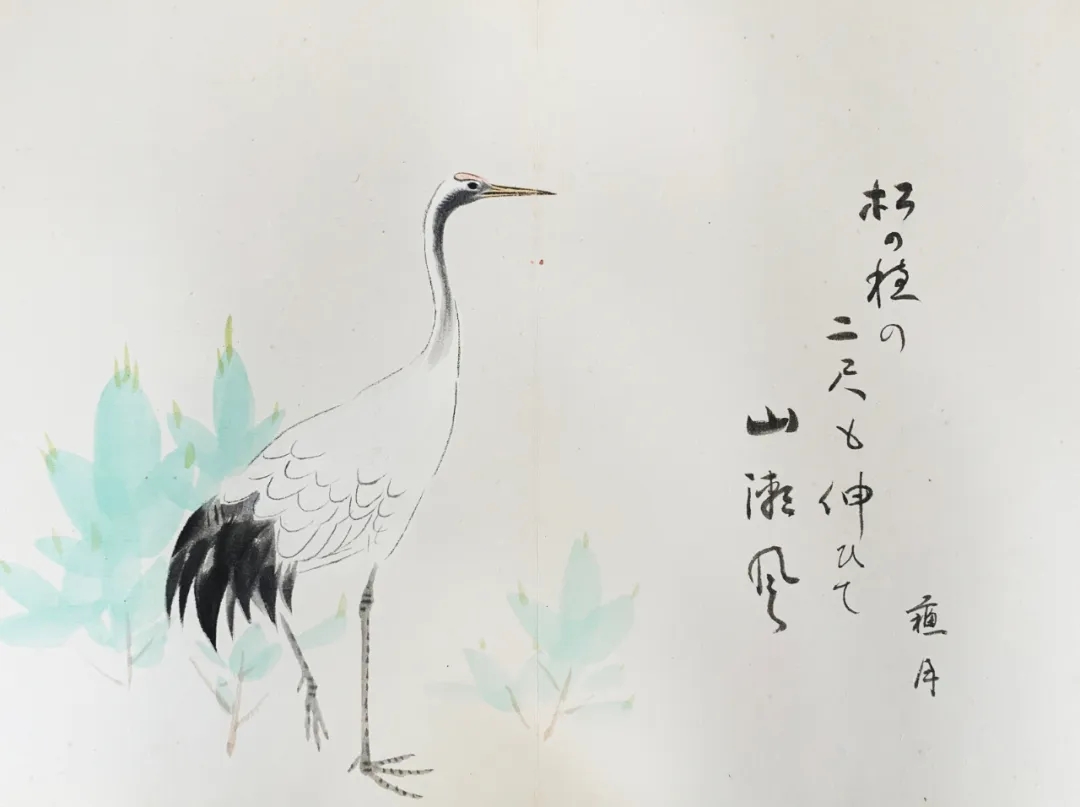 松の穂の
二尺も伸ひて
山瀬風
月